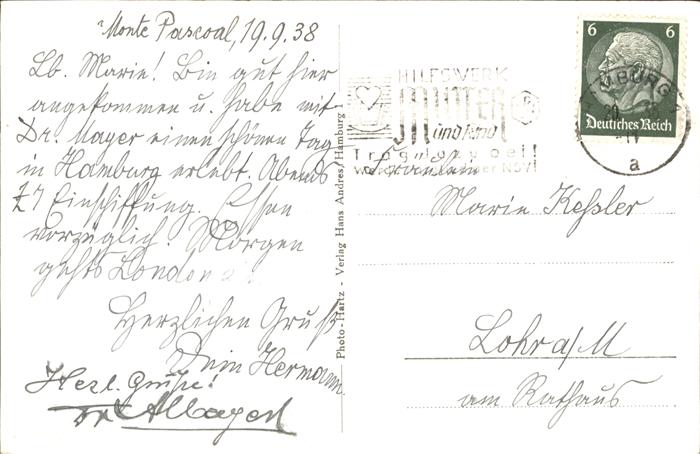 Monte Pascoal, 19.9.38
Lb. Marie! Bin gut hier
angekommen u. habe mit
Dr. Mayer einen schönen Tag
in Hamburg erlebt. Abends
Einschiffung. Essen
vorzüglich! Morgen
gehts London
Herzlichen Gruß
Dein Hermann.
Herzl. Grüße!
Photo-Hartz - Verlag Hans Andres, Hamburg
HILFSWERK
MUTTER
und Kind
Trag mit bei!
NSV!
6 6
Deutsches Reich
HAMBURG
a
Fräulein
Marie Keßler
Lohr a/M
am Rathaus